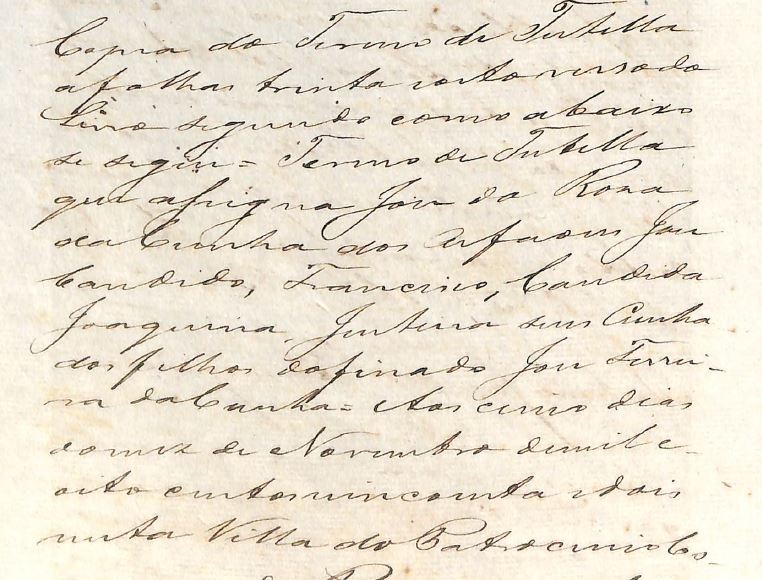 Copia do Termo de Tutella
a folhas trinta e oito verso do
Livro segundo como abaixo
se segue = Termo de Tutella
que assigna José da Roza
da Cunha dos Orfaons José
Candido, Francisco, Candida
Joaquina, Justina seus Cunha
dos filhos do finado José Ferrei-
ra da Cunha = Aos cinco dias
do mez de Novembro de mil e
oito centos e cincoenta e dois
nesta Villa do Patrocinio Co-